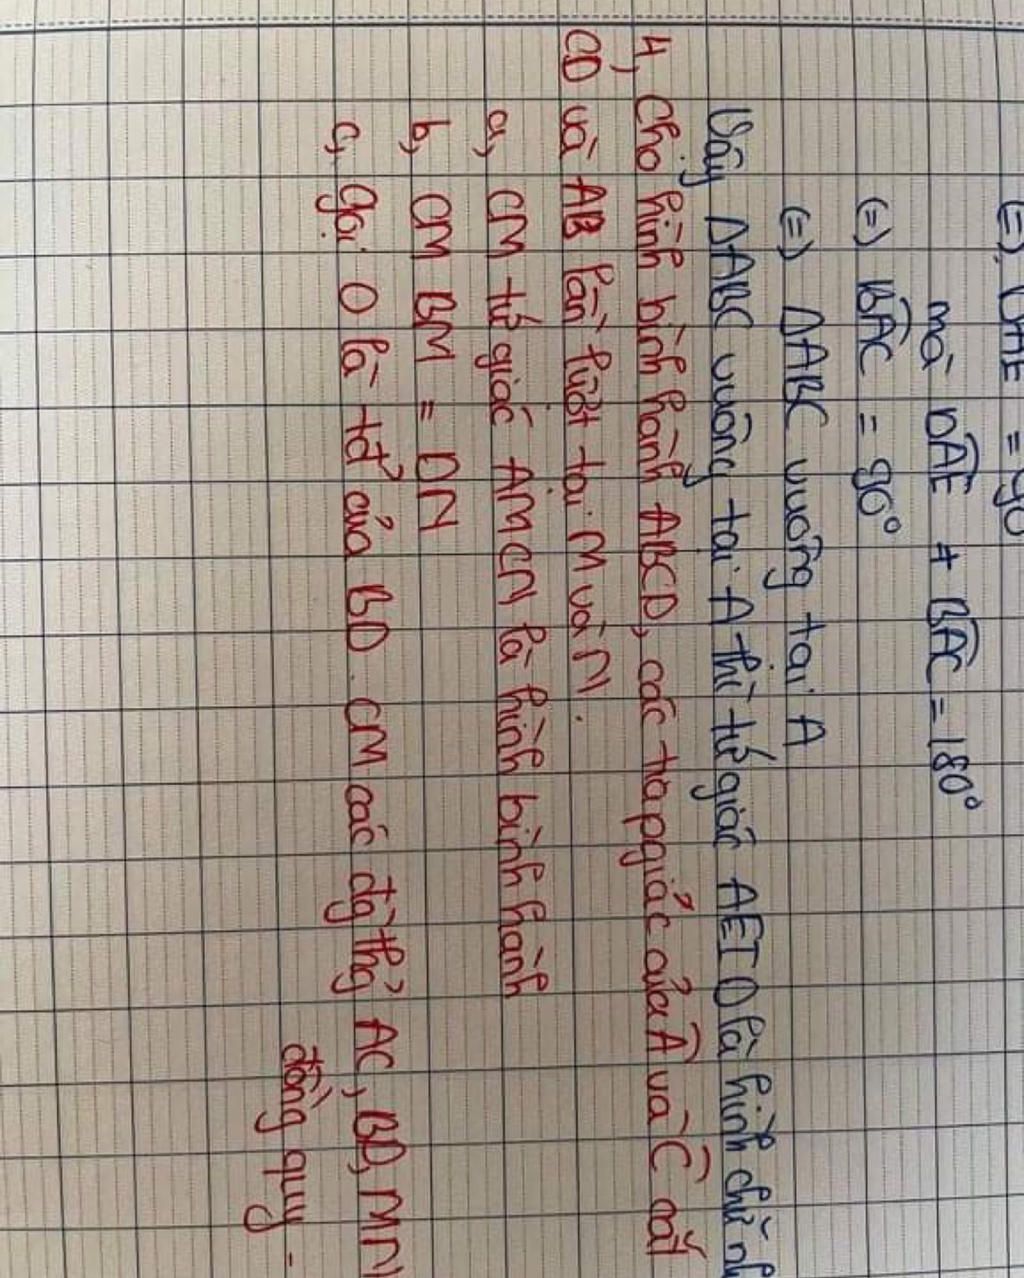 =) DAE = 90
mà DAE + BAC = 180°
(=) BAC = 90°
(=) ΔABC vuông tại A
Vậy ΔABC vuông tại A thì tứ giác AEIO là hình chữ nh
4, Cho hình bình hành ABCD, các tia pgiác của A và C cắt
CD và AB lần lượt tại M và N.
a, CM tứ giác AMCN là hình bình hành
b, CM BM = DN
c, gọi O là tđ của BD. CM các đg thg AC, BD, MN
đồng quy -